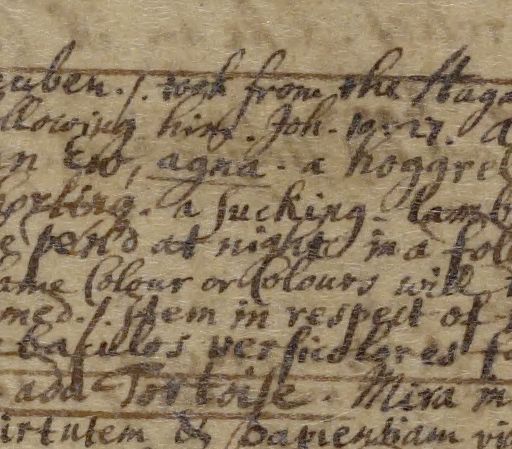 euben. /. took from the Staga
llowing him. Joh. 10. 27. a
an Ew, agna. a hoggrel
horling. a sucking. lamb
e pen'd at night in a fol
ame Colour or Colours will
med. / . Item in respect of
baculos versicolores f
ada Tortoise. Mira m
irtutem & sapientiam vi